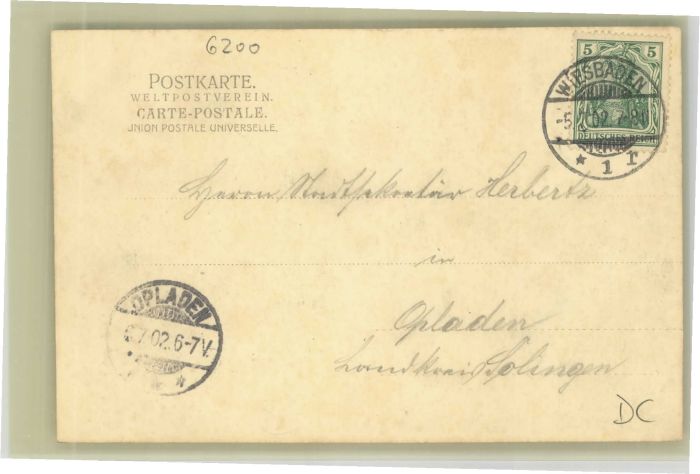 6200
POSTKARTE.
WELTPOSTVEREIN.
CARTE-POSTALE.
UNION POSTALE UNIVERSELLE.
5 5
DEUTSCHES REICH
WIESBADEN
-5. 02. 7-8
* 1 r
Herrn Stadtsekretär Herbertz
in
Opladen
Landkreis Solingen
OPLADEN
7.02.6-7V.
DC